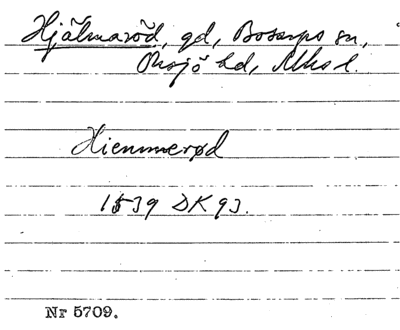 Hjälmaröd, gd, Bosarps sn,
Onsjö hd, Mhs l.
Hiemmerød
1539 DK 93.
Nr 5709.